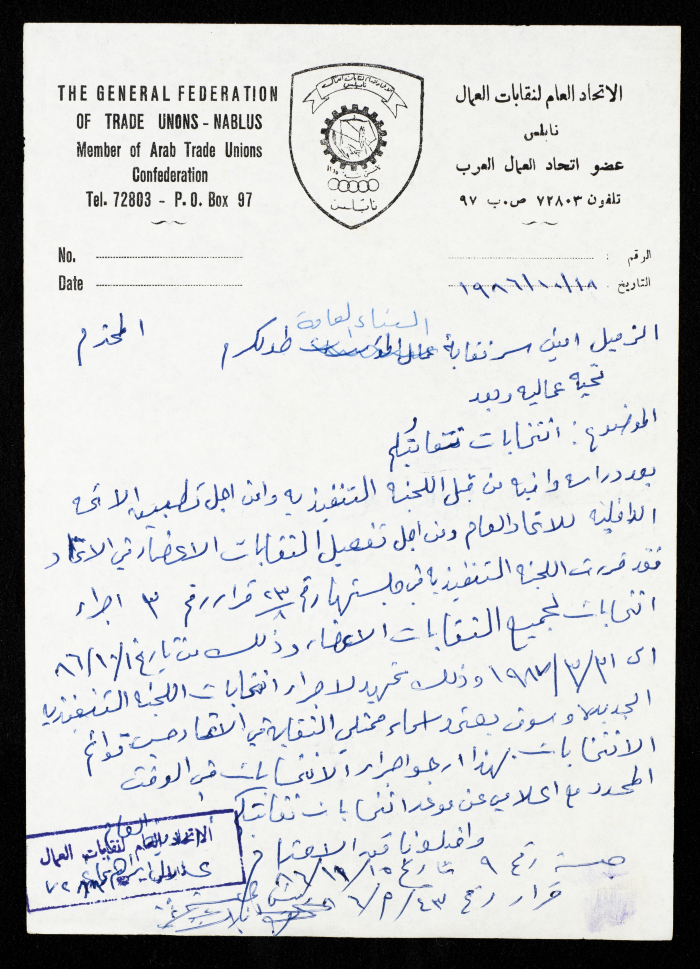 THE GENERAL FEDERATION
OF TRADE UNONS - NABLUS
Member of Arab Trade Unions
Confederation
Tel. 72803 - P. O. Box 97
الاتحاد العام لنقابات العمال
نابلس
عضو اتحاد العمال العرب
تلفون ٧٢٨٠٣ ص.ب ٩٧
نابلس
No.
Date
الرقم :
التاريخ : ١٩٨٦/١٠/١٨
البناء العامة
الزميل امين سر نقابة عمال طولكرم المحترم
تحية عمالية وبعد
الموضوع : انتخابات نقابتكم
بعد دراسة وافية من قبل اللجنة التنفيذية ومن اجل تطبيق الائحه
الداخلية للاتحاد العام ومن اجل تفعيل النقابات الاعضاء في الاتحاد
فقد قررت اللجنة التنفيذية في جلستها رقم ٢٣/٨ قرار رقم ٣ اجراء
انتخابات لجميع النقابات الاعضاء وذلك من تاريخ ٨٦/١٠/١
الى ١٩٨٧/٣/٣١ وذلك تمهيد لاجراء انتخابات اللجنة التنفيذية
الجديدة وسوف يعتمد اسماء ممثلي النقابة في الاتحاد حسب قوائم
الانتخابات. لهذا ارجو اجراء الانتخابات في الوقت
المحدد مع اعلامي عن موعد انتخابات نقابتكم
واقبلوا فائق الاحترام
الاتحاد العام لنقابات العمال
جلسة رقم ٩ تاريخ
قرار رقم ٤٣/٩/٦